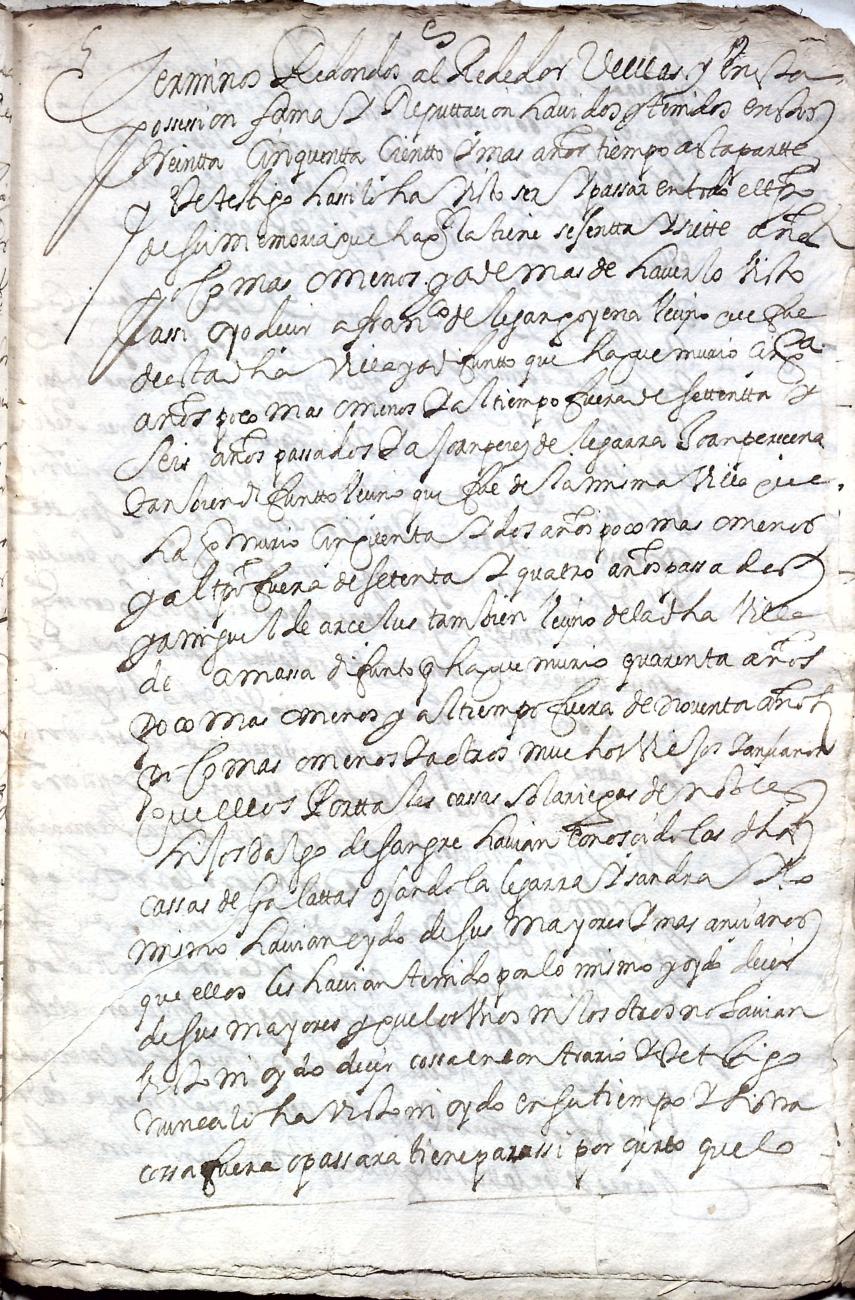 terminos Redondos al Rededor de ellas y en esta
possesion fama y Reputtacion havidos y tenidos en estos
Treintta Cinquentta Cientto y mas años tiempo a esta partte
y este testigo hassi lo ha visto ser y passar en todo el tpo
de su memoria que ha que la tiene sesentta y siette años
poco mas o menos y ademas de haverlo visto
assi oyo decir a franco de legarpoyena vecino que fue
de esta dha Villa ya difuntto que ha que murio
años poco mas o menos y al tiempo fuera de settentta y
seis años passados y a Joanperez de legarra
tambien difuntto vecino que fue de la misma Villa que
ha que murio Cinquenta y dos años poco mas o menos
y al tpo fuera de setenta y quatro años passados
y a miguel de arcelus tambien vecino de la dha Villa
de amassa difunto q ha que murio quarenta años
poco mas o menos y al tiempo fuera de noventa años
poco mas o menos y a otros muchos viejos y ancianos
que ellos Portta les cassas solariegas de nobles
hijosdalgo de sangre havian conoscido las dhas
cassas de Galattas osando la legarra y sandra y lo
mismo havian oydo de sus mayores y mas ancianos
que ellos les havian tenido por lo mismo y oydo decir
de sus mayores y que los Vnos ni los otros no havian
visto ni oydo decir cossa en contrario y este testigo
nunca lo ha visto ni oydo en su tiempo y si otra
cossa fuera o passara tiene para ssi por cierto que lo